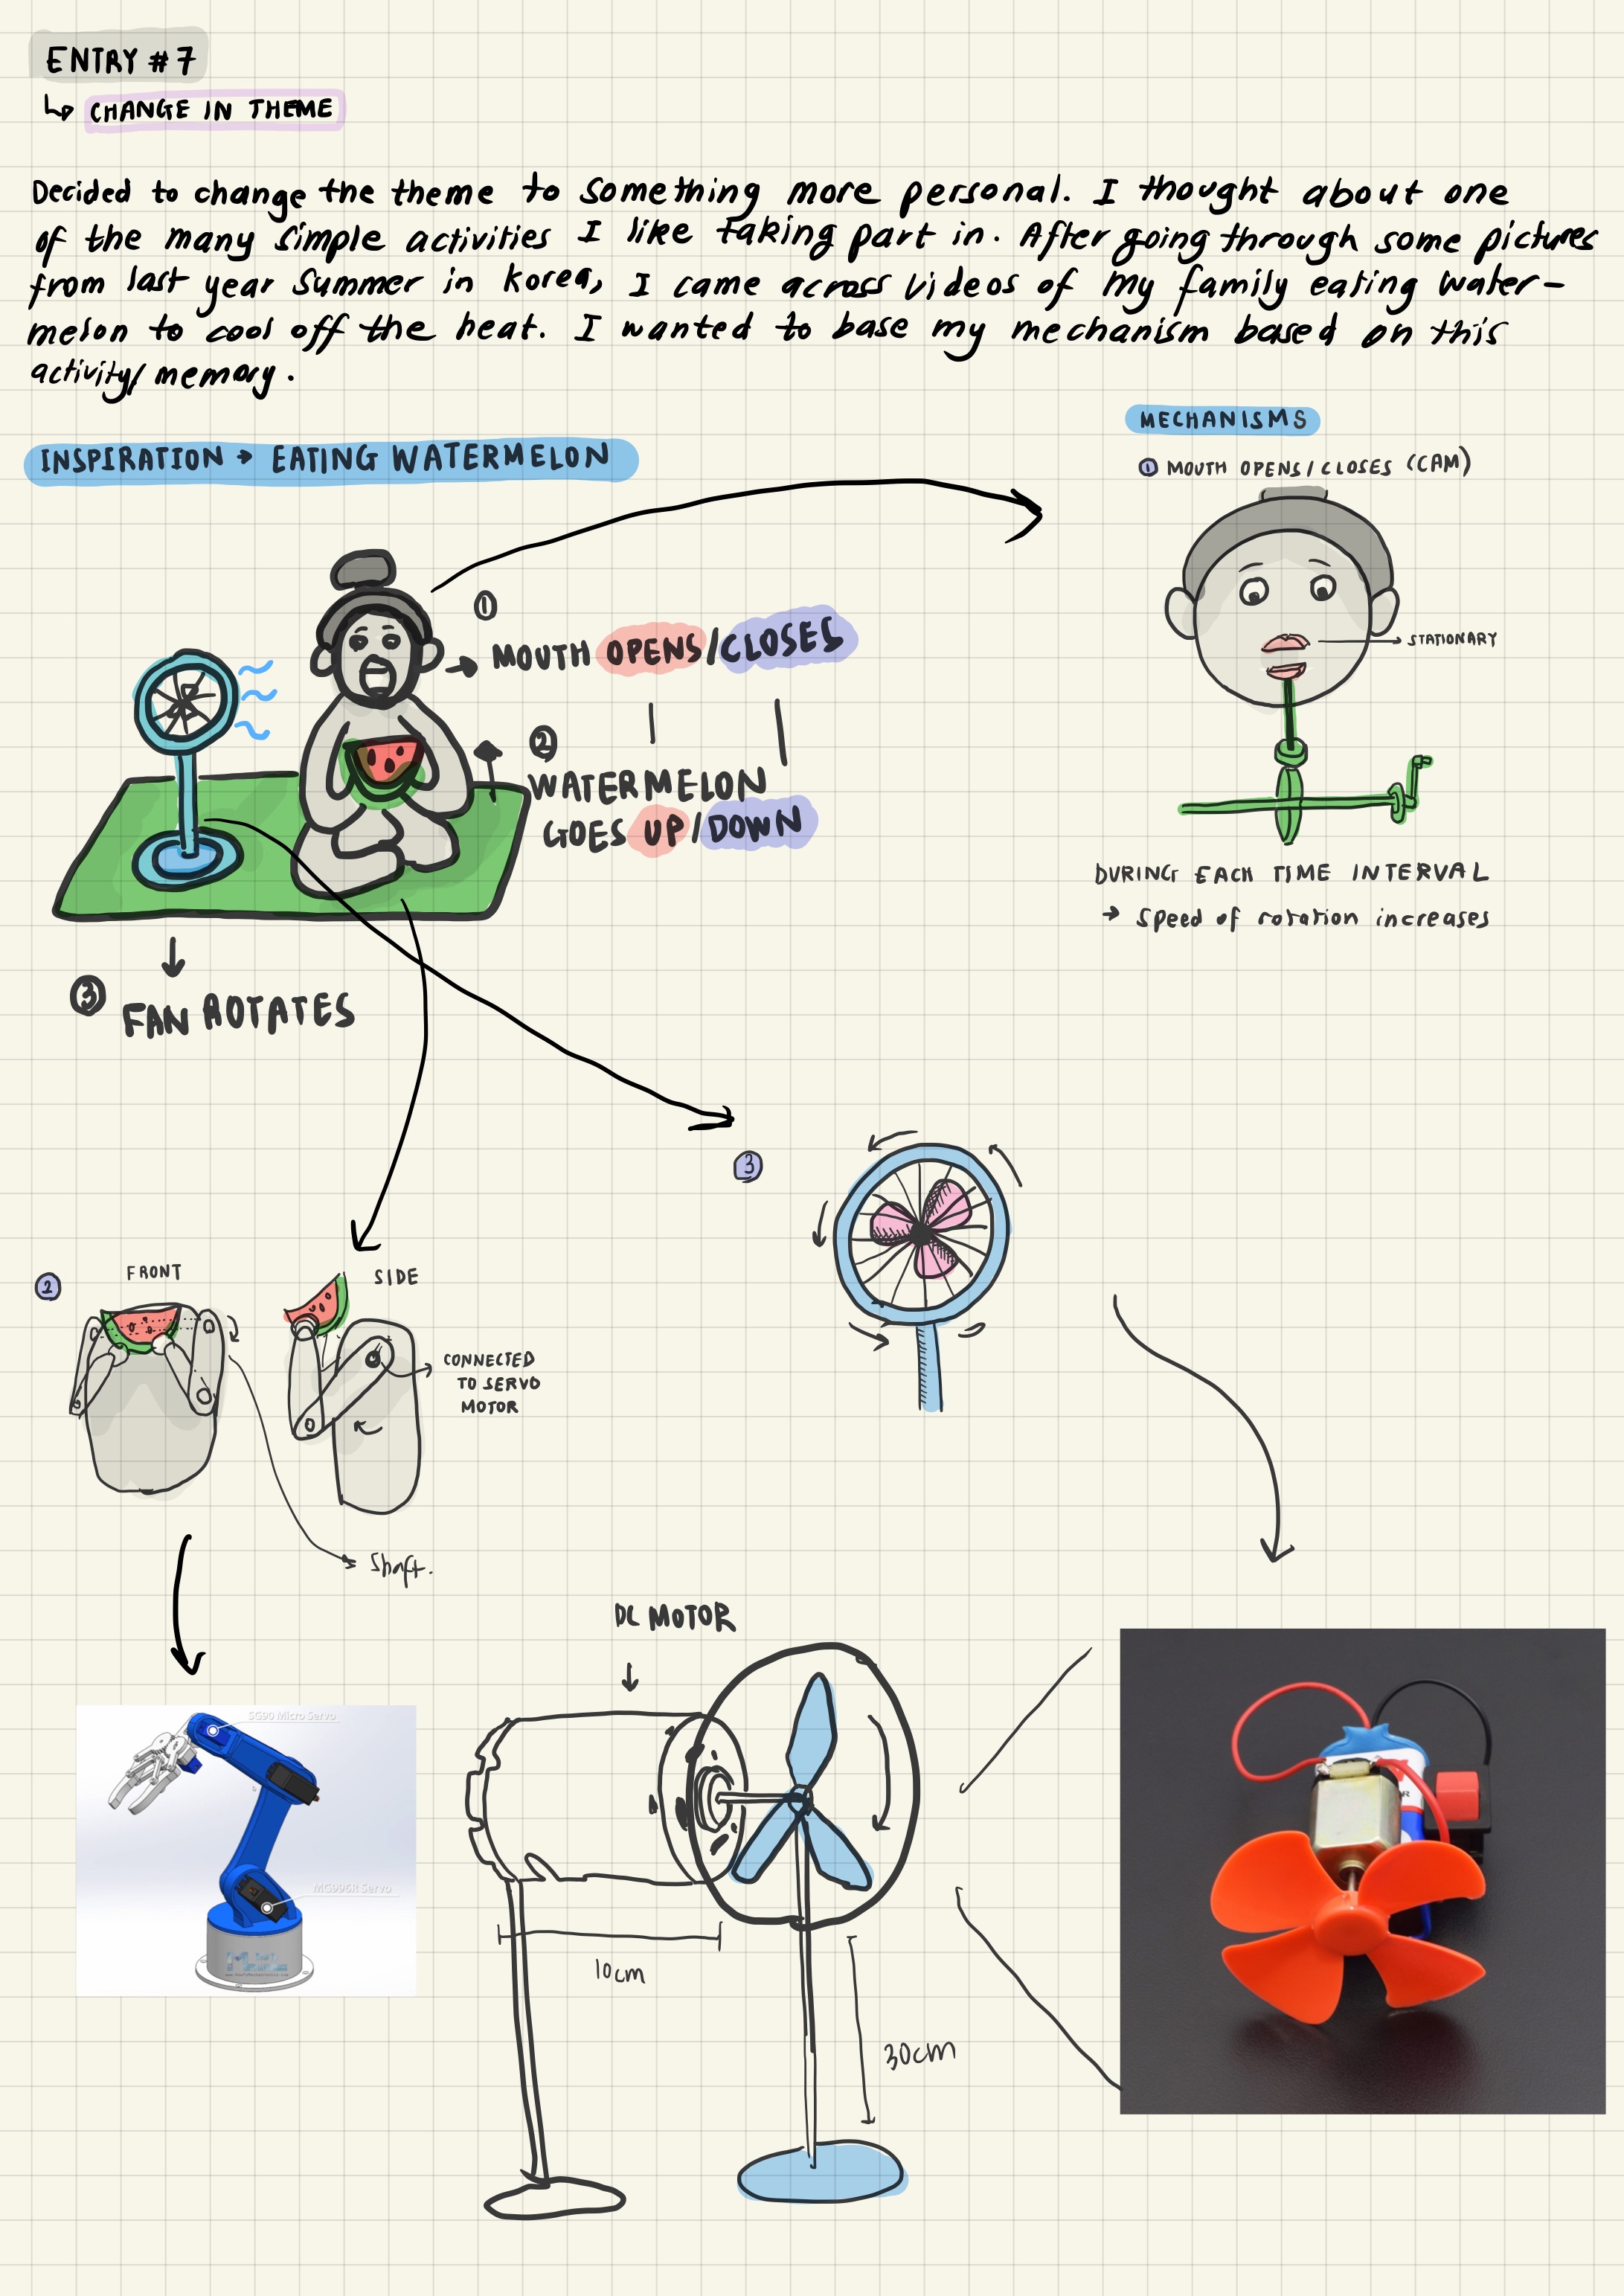 ENTRY #7
↳ CHANGE IN THEME
Decided to change the theme to something more personal. I thought about one
of the many simple activities I like taking part in. After going through some pictures
from last year summer in korea, I came across videos of my family eating water-
melon to cool off the heat. I wanted to base my mechanism based on this
activity/memory.
INSPIRATION → EATING WATERMELON
MECHANISMS
① MOUTH OPENS/CLOSES (CAM)
STATIONARY
DURING EACH TIME INTERVAL
→ speed of rotation increases
①
→ MOUTH OPENS/CLOSES
②
WATERMELON
GOES UP/DOWN
③ FAN ROTATES
③
②
FRONT
SIDE
CONNECTED
TO SERVO
MOTOR
Shaft.
SG90 Micro Servo
MG996R Servo
DC MOTOR
10cm
30cm